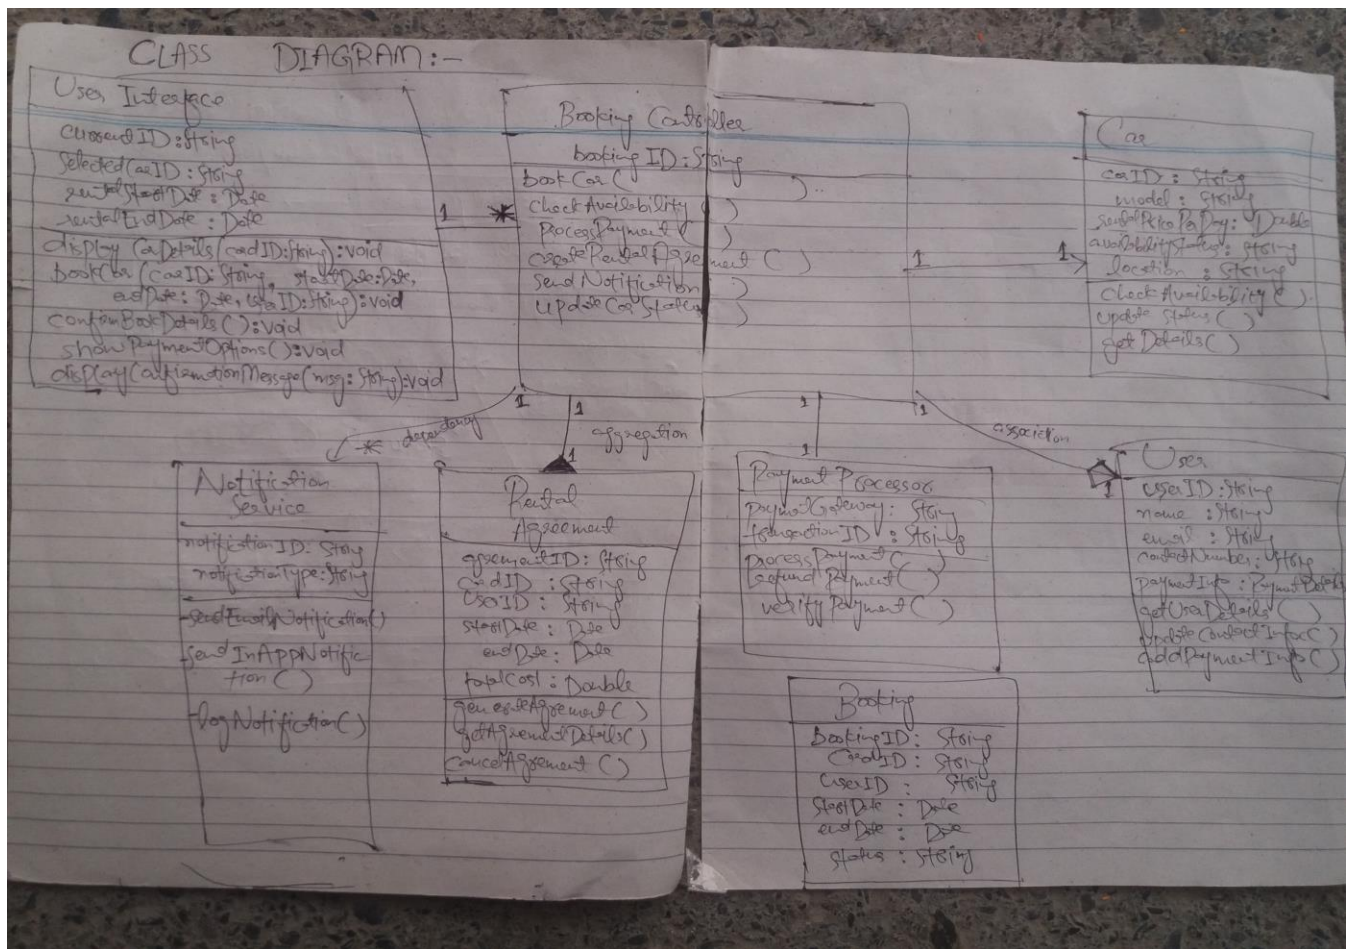 CLASS DIAGRAM:-
User Interface
currentID:String
selectedCarID:String
rentalStartDate: Date
rentalEndDate: Date
display CarDetails(cardID:String):void
bookCar(carID:String, startDate:Date,
endDate: Date, userID:String):void
confirmBookDetails():void
showPaymentOptions():void
display(msg:String):void
1
*
Booking Controller
bookingID:String
bookCar( )
checkAvailability( )
processPayment( )
createRentalAgreement( )
sendNotification( )
updateCarStatus( )
1
1
Car
carID: String
model: String
rentalPricePerDay: Double
availabilityStatus: String
location: String
checkAvailability( )
update Status( )
get Details( )
1
*
dependency
1
aggregation
1
1
1
1
association
1
Notification
Service
notificationID: String
notificationType: String
-sendEmailNotification()
-sendInAppNotific
tion( )
-logNotification()
Rental
Agreement
agreementID: String
cardID: String
userID: String
startDate: Date
endDate: Date
totalCost: Double
generateAgreement( )
getAgreementDetails()
cancelAgreement( )
Payment Processor
paymentGateway: String
transactionID: String
processPayment( )
refund Payment( )
verifyPayment( )
User
userID:String
name :String
email : String
contactNumber: String
paymentInfo: PaymentDetails
getUserDetails( )
updateContactInfo( )
addPaymentInfo( )
Booking
BookingID: String
CardID: String
UserID: String
startDate: Date
endDate: Date
status: String